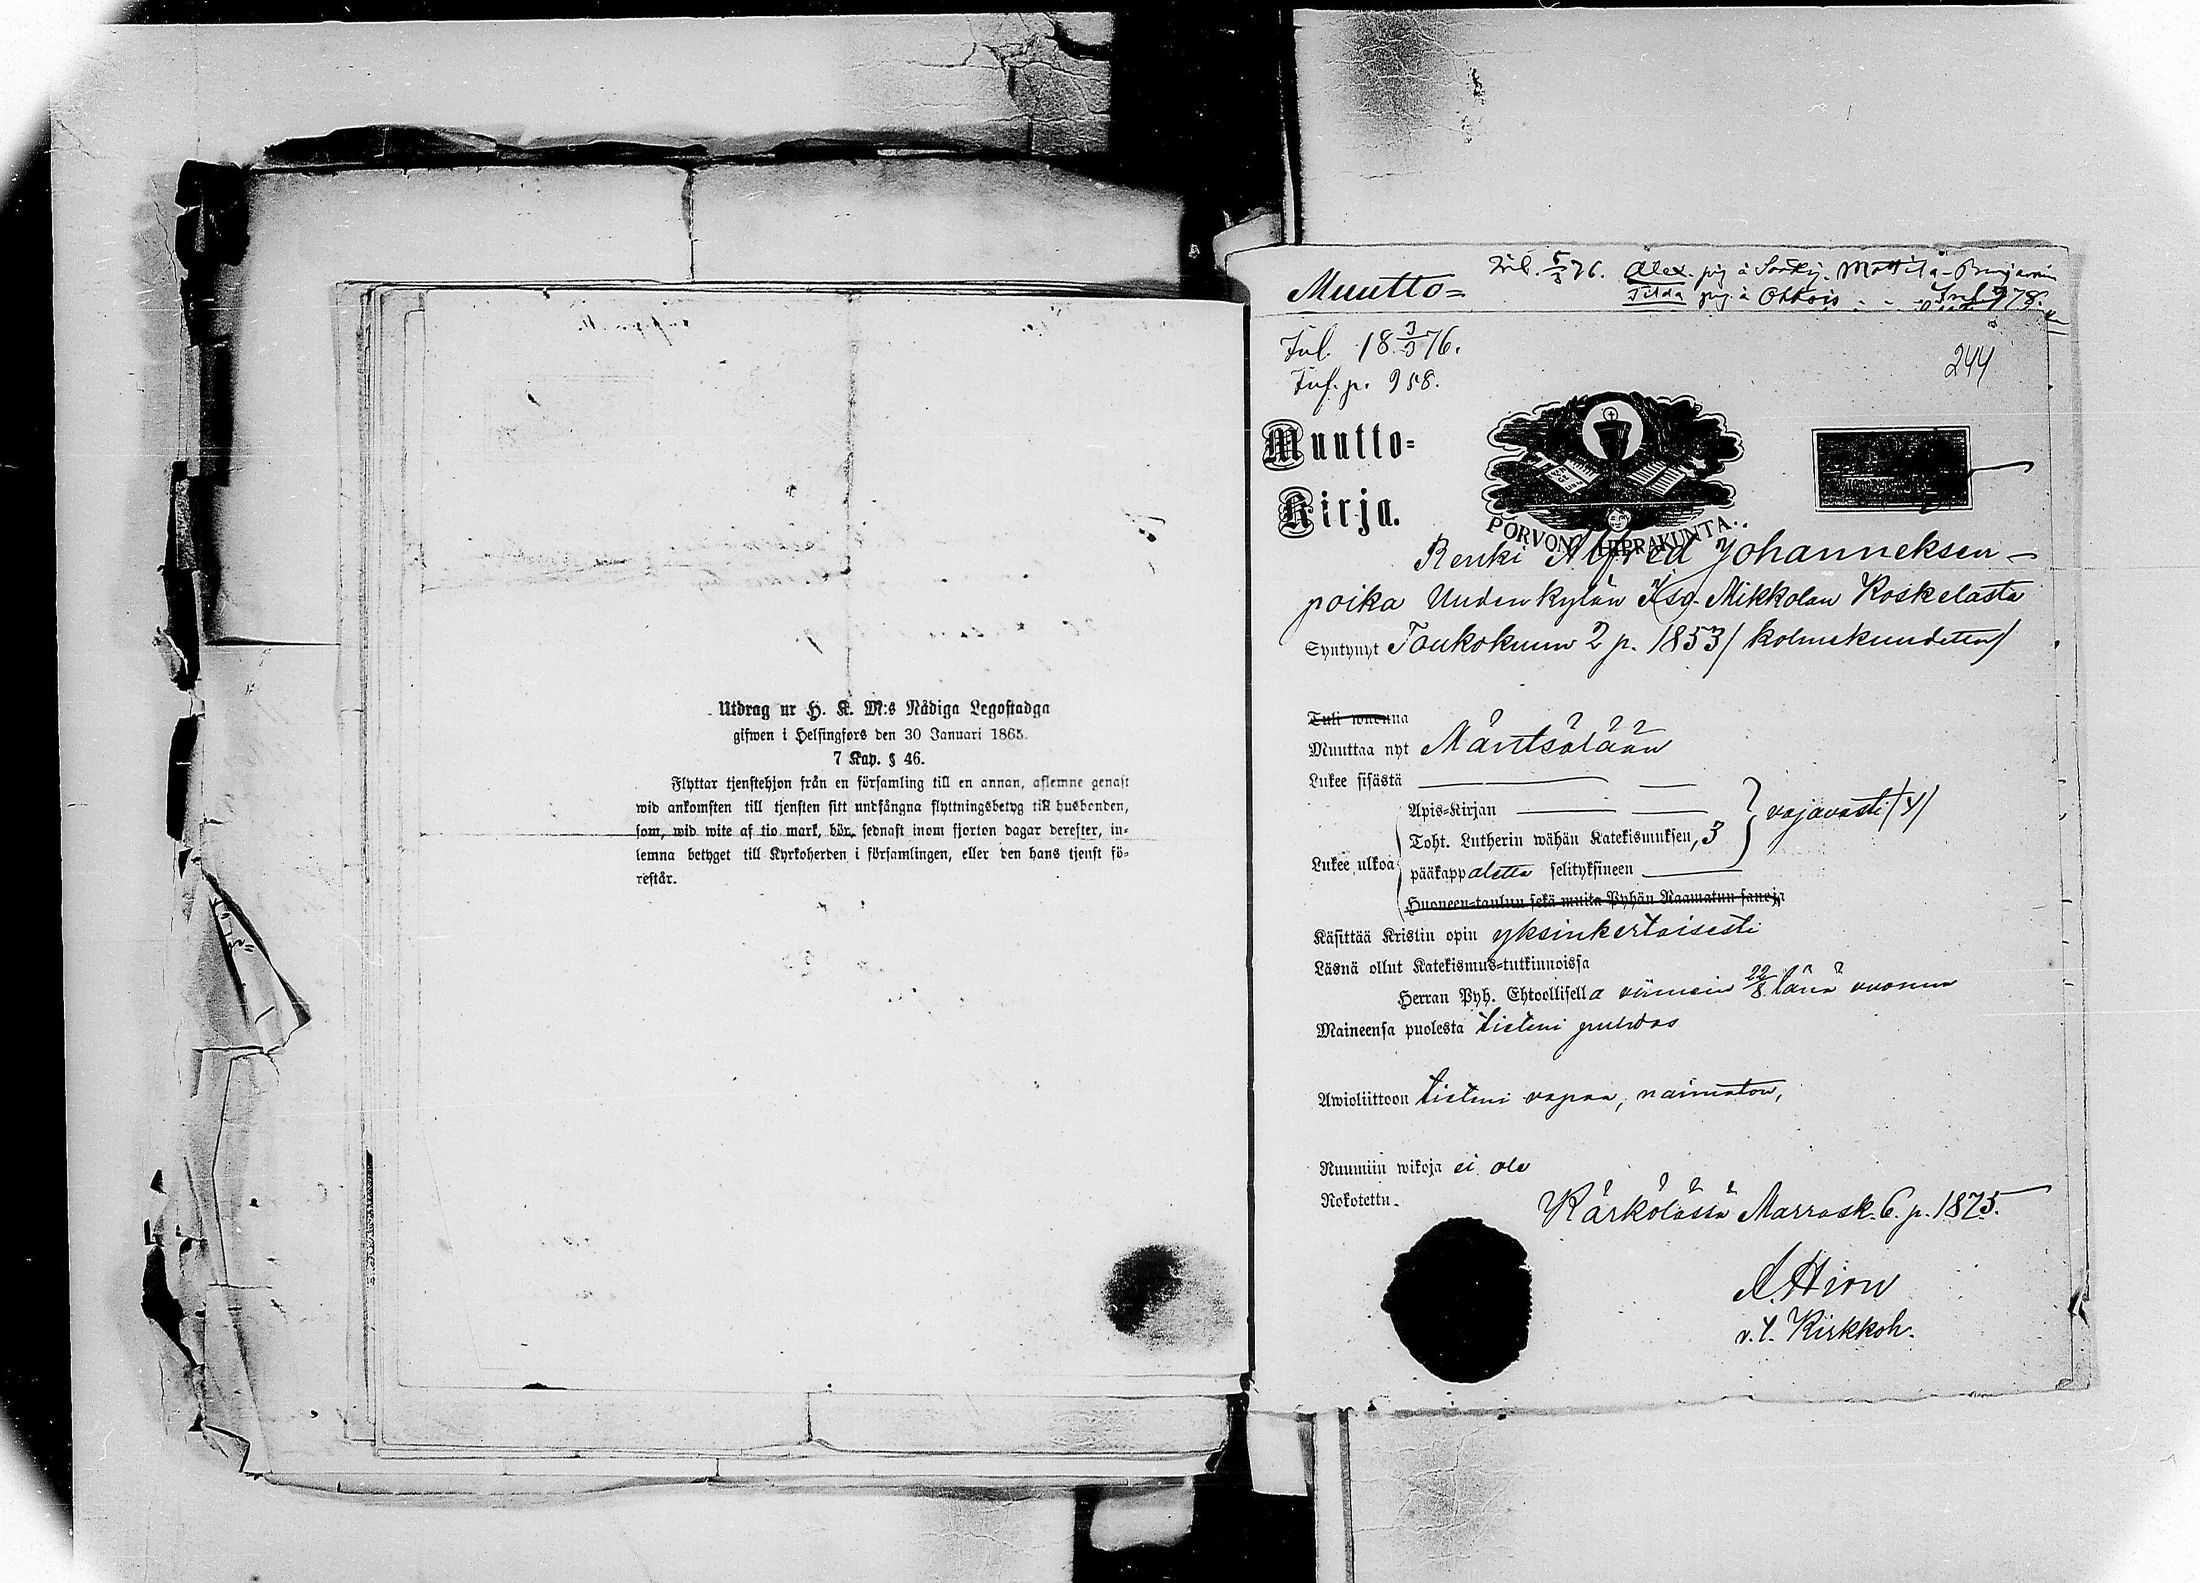 Utdrag ur H. K. M:s Nådiga Legostadga
gifwen i Helsingfors den 30 Januari 1865.
7 Kap. § 46.
Flyttar tjenstehjon från en församling till en annan, aflemne genast
wid ankomsten till tjensten sitt undfångna flyttningsbetyg till husbonden,
som, wid wite af tio mark, bör, sednast inom fjorton dagar derefter, in-
lemna betyget till Kyrkoherden i församlingen, eller den hans tjenst fö-
restår.
Muutto=
Inl. 5/3 76. Alex. pig â Mattila Benjamin
Tilda pig â Ohkois
Inl. 18 3/3 76.
Inf. p. 958.
244
Muutto-
Kirja.
PORVON HIPPAKUNTA.
Renki Alfred Johanneksen-
poika Uudenkylän Iso-Mikkolan Koskelasta
Syntynyt Toukokuun 2 p. 1853 / kolmekuudetta/
Tuli wuonna
Muuttaa nyt Mäntsälään
Lukee sisästä
Apis-Kirjan
vajavasti (y)
Toht. Lutherin wähän Katekismuksen, 3
Lukee ulkoa
pääkappaletta selityksineen
Huoneen-taulun sekä muita Pyhän Raamatun sanoja
Käsittää Kristin opin yksinkertaisesti
Läsnä ollut Katekismus-tutkinnoissa
Herran Pyh. Ehtoollisella viimein 22/8 tänä vuonna
Maineensa puolesta tietteni puhdas
Awioliittoon tietteni vapaa, naimaton,
Ruumiin wikoja ei ole
Rokotettu.
Kärkölässä Marrask. 6. p. 1875.
A. Hirn
v.t. Kirkkoh.